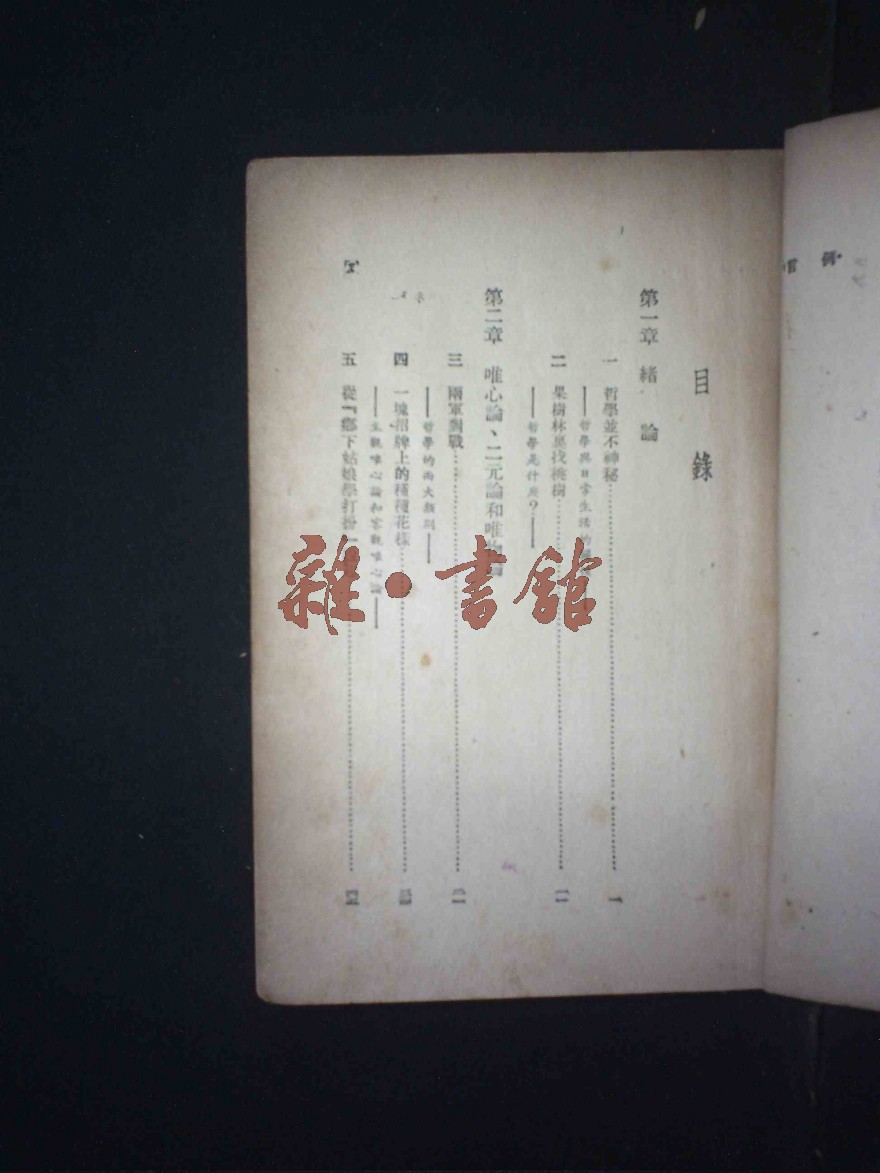 目錄
第一章 緒論
一 哲學並不神秘……一
——哲學與日常生活的
二 果樹林裏找桃樹……一一
——哲學是什麼？——
第二章 唯心論、二元論和唯物論
三 兩軍對戰……二一
——哲學的兩大類別——
四 一塊招牌上的種種花樣……
——主觀唯心論和客觀唯心論——
五 從『鄉下姑娘學打扮
例言
雜·書館